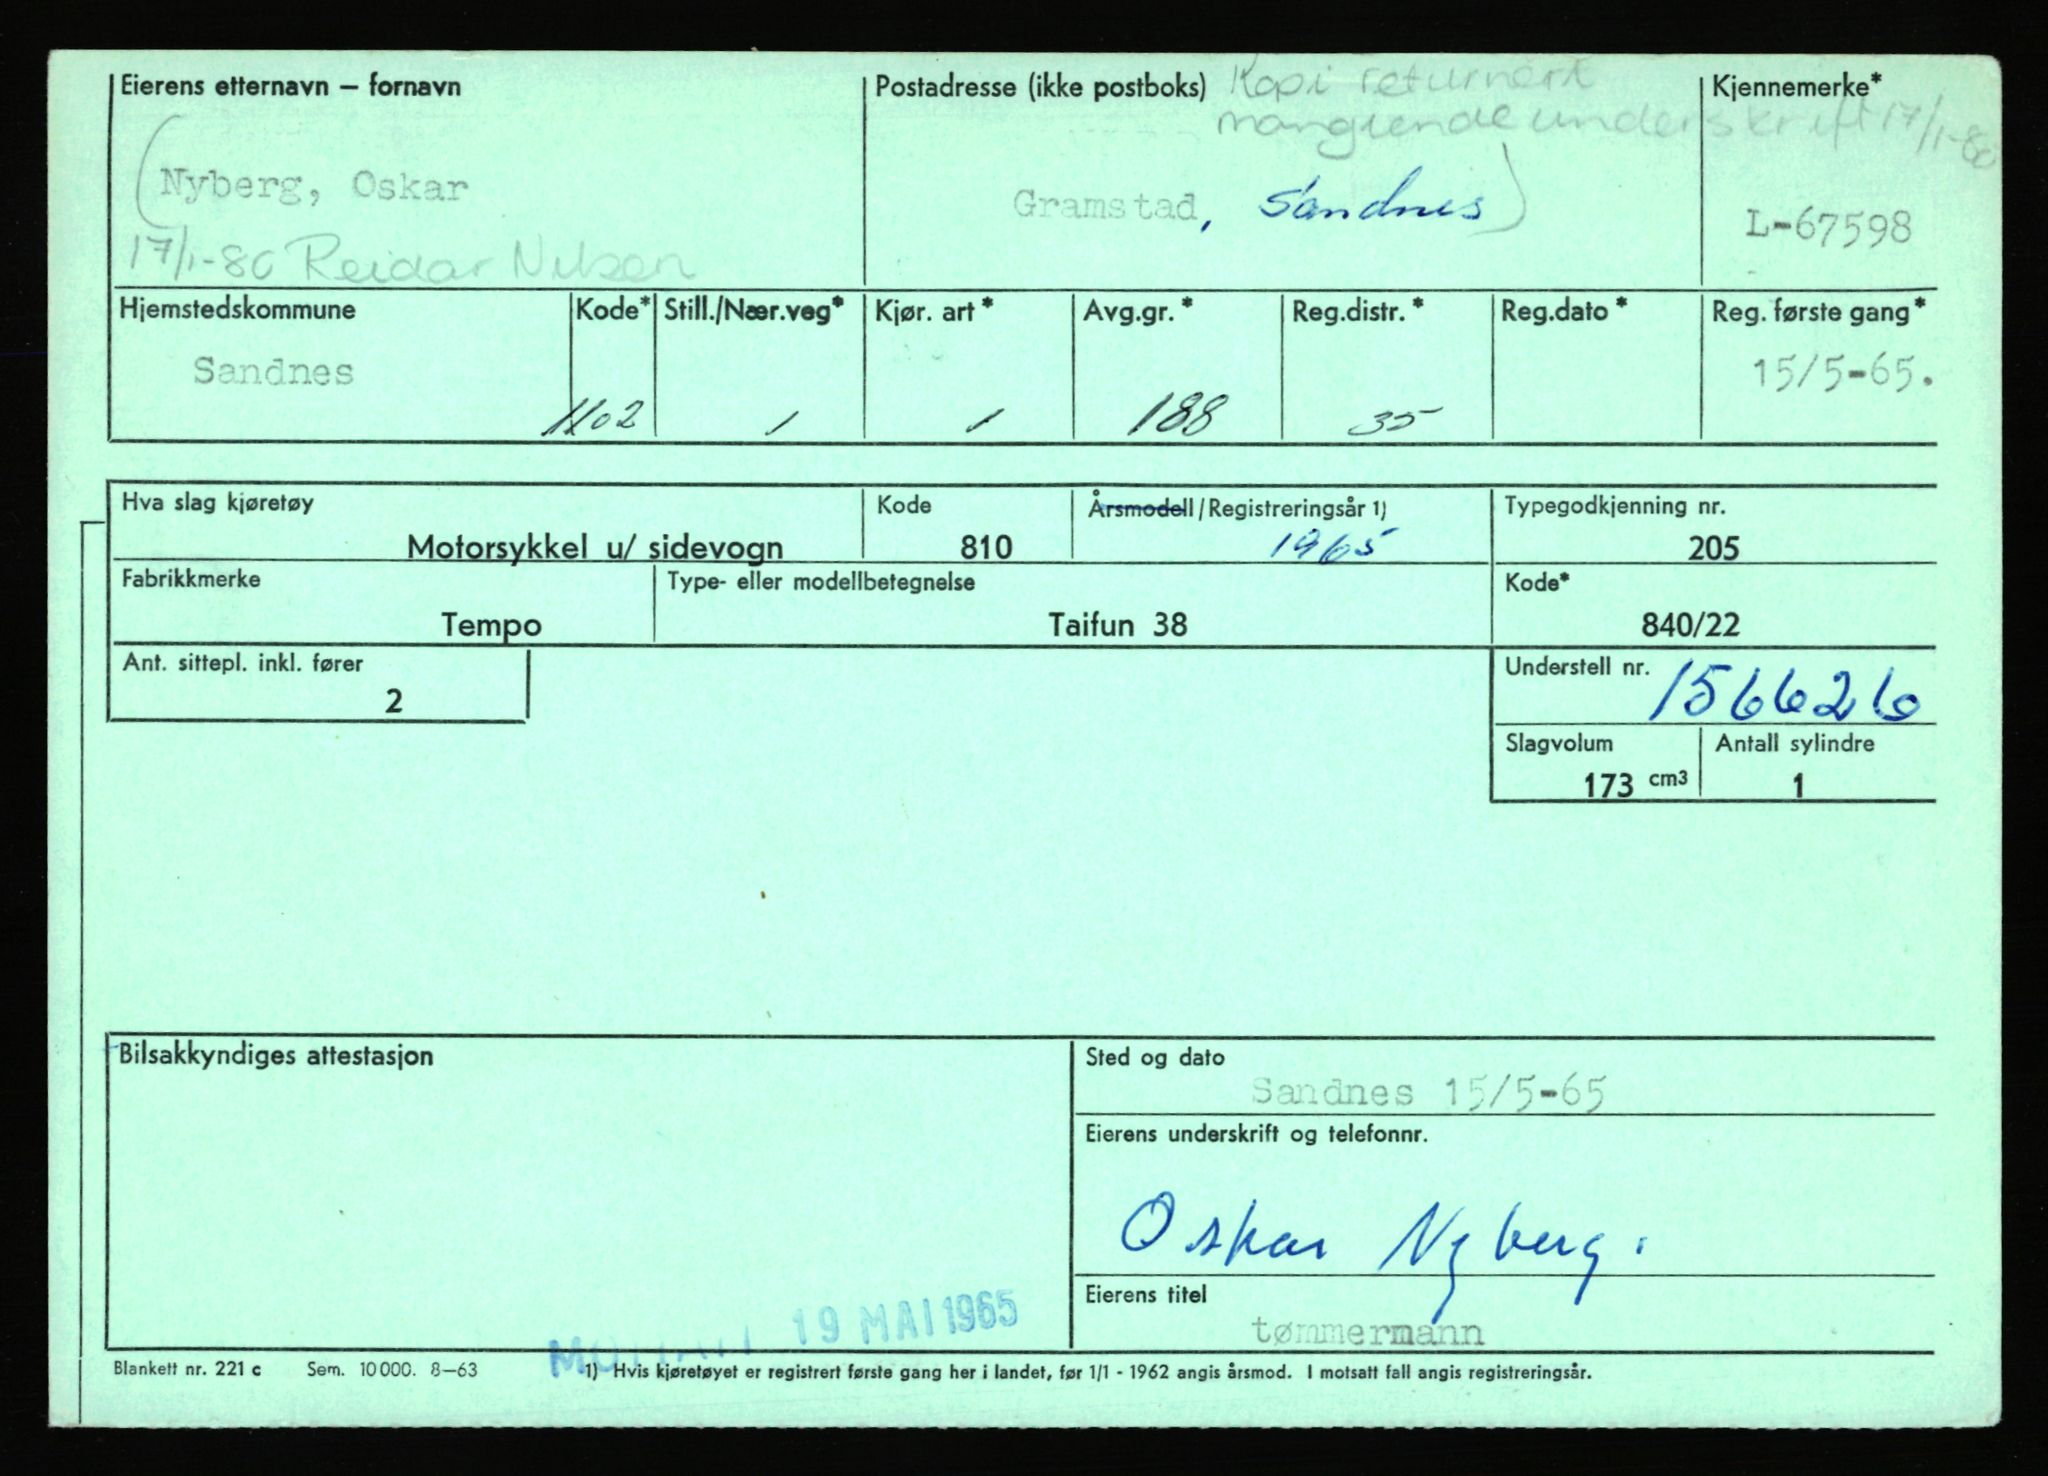 Eierens etternavn – fornavn
Postadresse (ikke postboks)
Kopi returnert
manglende underskrift 17/1-80
Kjennemerke*
(Nyberg, Oskar
Gramstad, Sandnes)
L-67598
17/1-80 Reidar Nilsen
Hjemstedskommune
Sandnes
Kode*
1102
Still./Nær.veg*
1
Kjør. art*
1
Avg.gr.*
188
Reg.distr.*
35
Reg.dato*
Reg. første gang*
15/5-65.
Hva slag kjøretøy
Motorsykkel u/ sidevogn
Kode
810
Årsmodell/Registreringsår 1)
1965
Typegodkjenning nr.
205
Fabrikkmerke
Tempo
Type- eller modellbetegnelse
Taifun 38
Kode*
840/22
Ant. sittepl. inkl. fører
2
Understell nr.
156626
Slagvolum
173 cm3
Antall sylindre
1
Bilsakkyndiges attestasjon
Sted og dato
Sandnes 15/5-65
Eierens underskrift og telefonnr.
Oskar Nyberg.
Eierens titel
tømmermann
19 MAI 1965
Blankett nr. 221 c Sem. 10 000. 8–63
1) Hvis kjøretøyet er registrert første gang her i landet, før 1/1 - 1962 angis årsmod. I motsatt fall angis registreringsår.